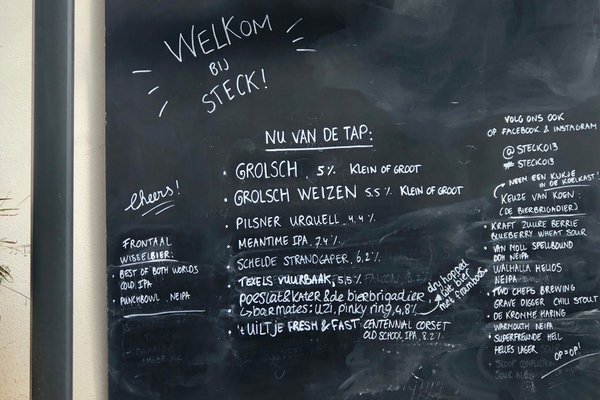 WELKOM
BIJ
STECK!
NU VAN DE TAP:
• GROLSCH 5% KLEIN OF GROOT
• GROLSCH WEIZEN 5.5% KLEIN OF GROOT
• PILSNER URQUELL 4.4%
• MEANTIME IPA 7.4%
SCHELDE STRANDGAPER 6.2%
• TEXELS VUURBAAK 5,5%
POESIAT & KATER & de bierbrigadier
↳ barmates: UZI, pinky ring, 4,8%
dry hopped
wit bier
met framboos.
• 't UILTJE FRESH & FAST CENTENNIAL CORSET
OLD SCHOOL IPA, 8.2%
cheers!
FRONTAAL
WISSELBIER:
• BEST OF BOTH WORLDS
COLD IPA
• PUNCHBOWL NEIPA
VOLG ONS OOK
OP FACEBOOK & INSTAGRAM
@STECK013
#STECK013
NEEM EEN KIJKJE
IN DE KOELKAST!
KEUZE VAN KOEN:
(DE BIERBRIGADIER)
• KRAFT ZUURE BERRIE
BLUEBERRY WHEAT SOUR
• VAN MOLL SPELLBOUND
DDH NEIPA
• WALHALLA HELIOS
NEIPA
• TWO CHEFS BREWING
GRAVE DIGGER CHILI STOUT
• DE KROMME HARING
WARMOUTH NEIPA
• SUPERFREUNDE HELL
HELLES LAGER
OP=OP!